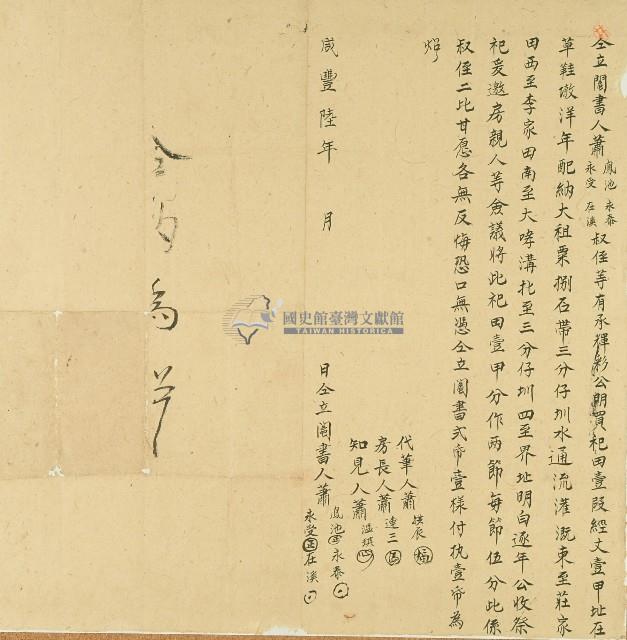 仝立鬮書人蕭鳳池永泰永受在溪叔侄等有承祖彩公明買祀田壹段經丈壹甲址在
草鞋墩洋年配納大租粟捌石帶三分仔圳水通流灌溉東至莊家
田西至李家田南至大哮溝北至三分仔圳四至界址明白逐年公收祭
祀爰邀房親人等僉議將此祀田壹甲分作兩節每節伍分此係
叔侄二比甘愿各無反悔恐口無憑仝立鬮書弍帋壹樣付执壹帋為
炤
代筆人蕭
房長人蕭達三
知見人蕭
咸豐陸年 月 日仝立鬮書人蕭鳳池永泰永受在溪
國史館臺灣文獻館
TAIWAN HISTORICA